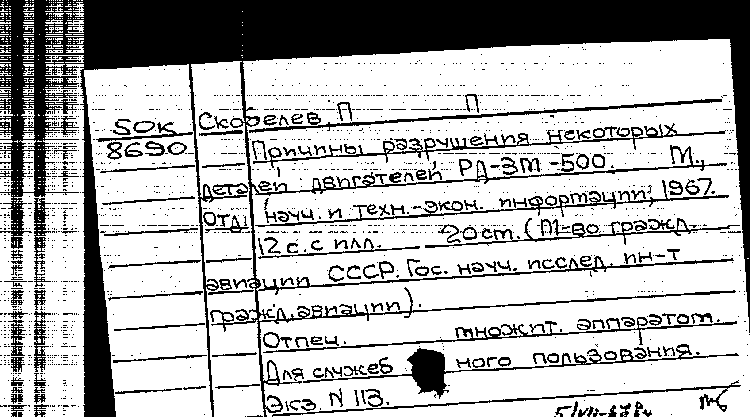 50к Скобелев, П П
8690 Причины разрушения некоторых
деталей двигателей РД-3М-500. М.,
Отд. науч. и техн.-экон. информации, 1967.
12 с. с илл. 20 см. (М-во гражд.
авиации СССР. Гос. науч. исслед. ин-т
гражд. авиации).
Отпеч. множит. аппаратом.
Для служеб ного пользования.
Экз. N 113.